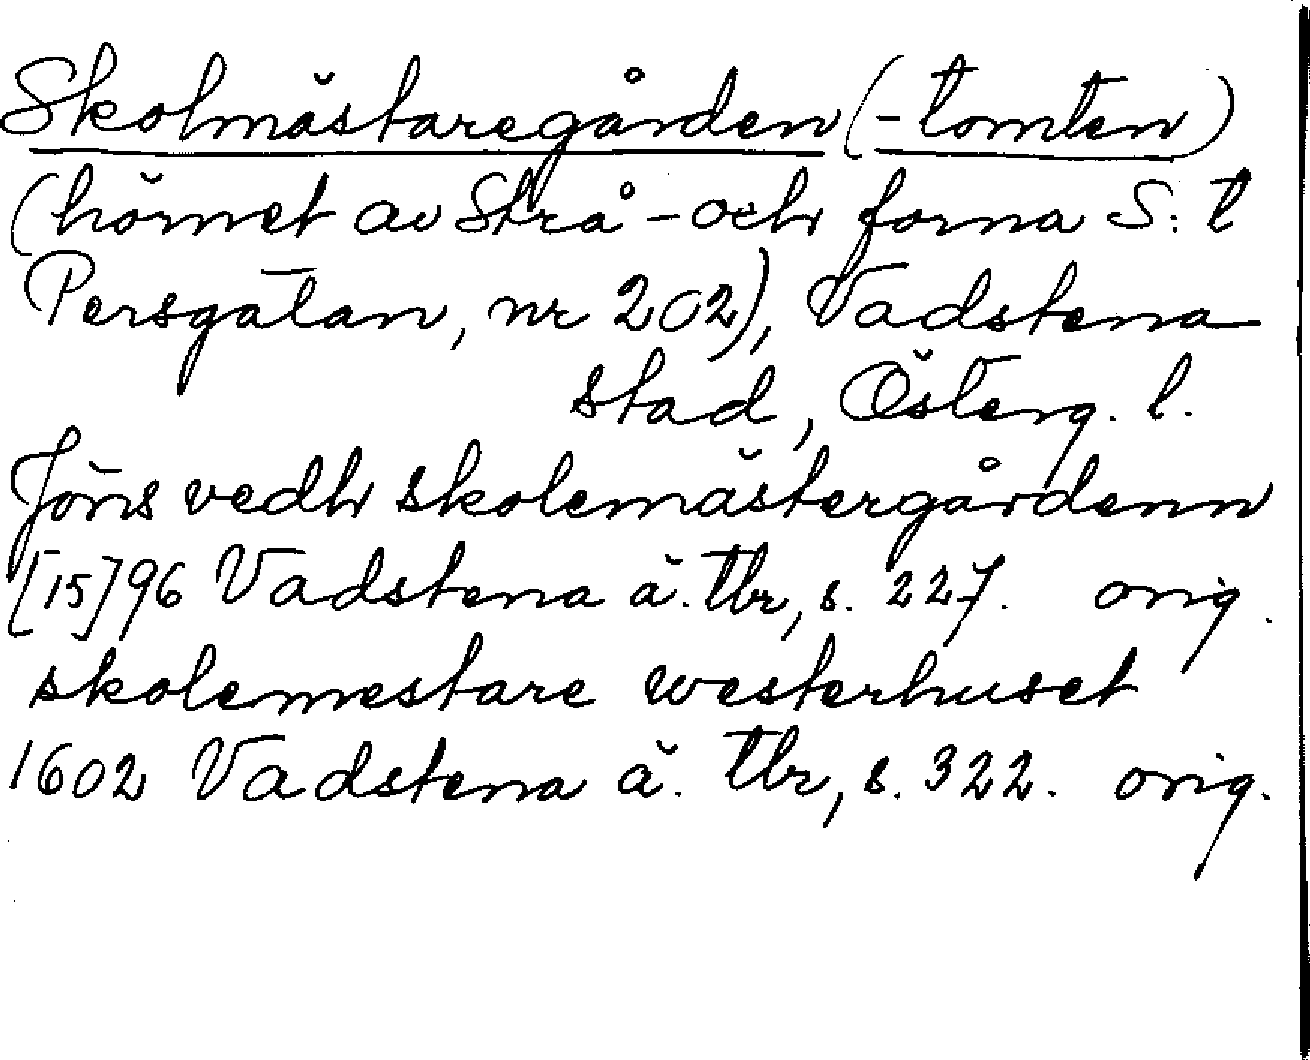 Skolmästaregården (-tomten)
(hörnet av Strå- och forna S:t
Persgatan, nr 202), Vadstena
stad, Österg. l.
Jöns vedh skolemästergårdenn
[15]96 Vadstena ä. tbr, s. 227. orig.
skolemestare westerhuset
1602 Vadstena ä. tbr, s. 322. orig.